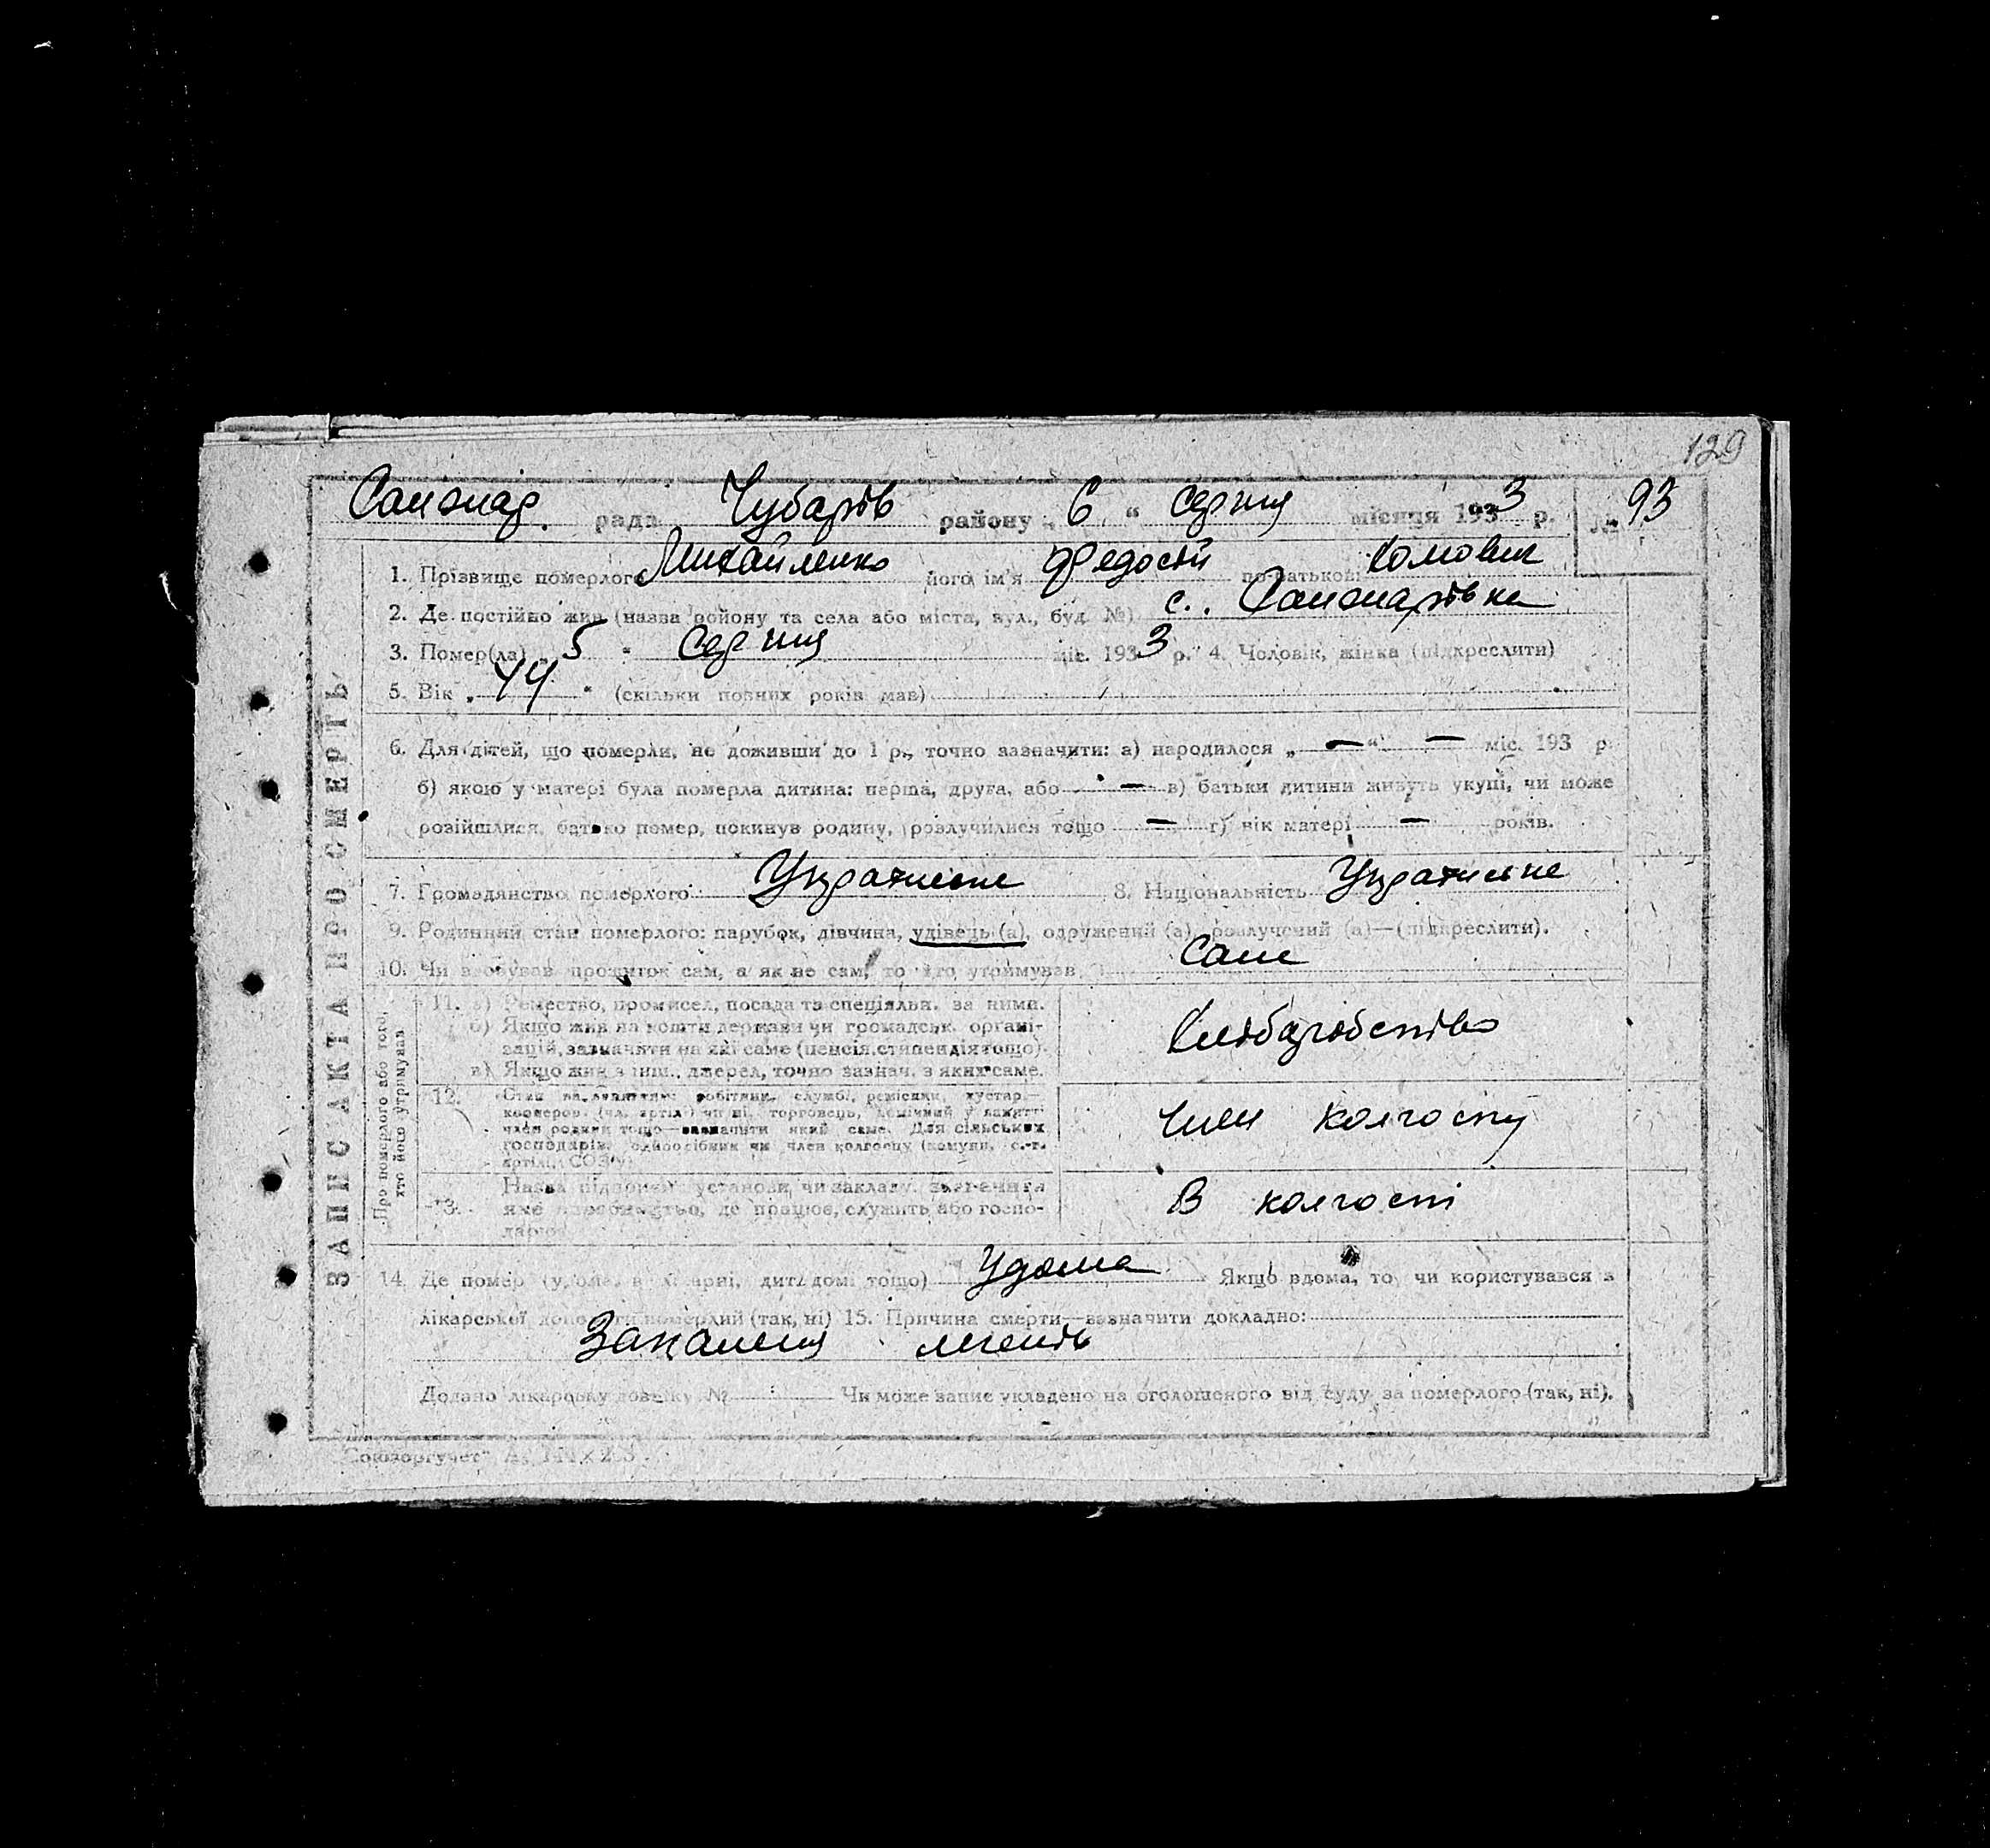 129
Самонар. рада Чубарів району „ 6 “ серпня місяця 1933 р. № 93
1. Прізвище померлого Михайленко його ім'я Федосій по-батькові Хомович
2. Де постійно жив (назва району та села або міста, вул., буд. №) с.
3. Помер(ла) „ 5 “ серпня міс. 1933 р. 4. Чоловік, жінка (підкреслити)
5. Вік „ 44 “ (скільки повних років мав)
6. Для дітей, що померли, не доживши до 1 р., точно зазначити: а) народилося „ — “ — міс. 193 р.
б) якою у матері була померла дитина: перша, друга, або — в) батьки дитини живуть укупі, чи може
розійшлися, батько помер, покинув родину, розлучилися тощо — г) вік матері — років.
7. Громадянство померлого Українське 8. Національність Українське
9. Родинний стан померлого: парубок, дівчина, удівець (а), одружений (а), розлучений (а)—(підкреслити).
10. Чи заробував прожиток сам, а як не сам, то хто утримував Сам
ЗАПИС АКТА ПРО СМЕРТЬ
Про померлого або того,
хто його утримував
11. а) Ремество, промисел, посада та спеціяльн. за ними.
б) Якщо жив на кошти держави чи громадськ. органі-
зацій, зазначити на які саме (пенсія, стипендія тощо).
в) Якщо жив з інш. джерел, точно зазнач. з яких саме.
Хліборобство
12. член родини тощо—зазначити який саме. Для сільських
господарів, одноосібник чи член колгоспу (комуни, с.-г.
артілі, СОЗ'у)
Член колгоспу
13. Назва підприєм. установи, чи закладу, зазначити
яке виробництво, де працює, служить або госпо-
дарює
В колгоспі
14. Де помер (удома, в лікарні, дитдомі тощо) Удома Якщо вдома, то чи користувався з
лікарської допомоги померлий (так, ні) 15. Причина смерти—зазначити докладно:
Запалення легенів
Додано лікарську довідку № Чи може запис укладено на оголошеного від суду за померлого (так, ні).
"Союзоргучет"